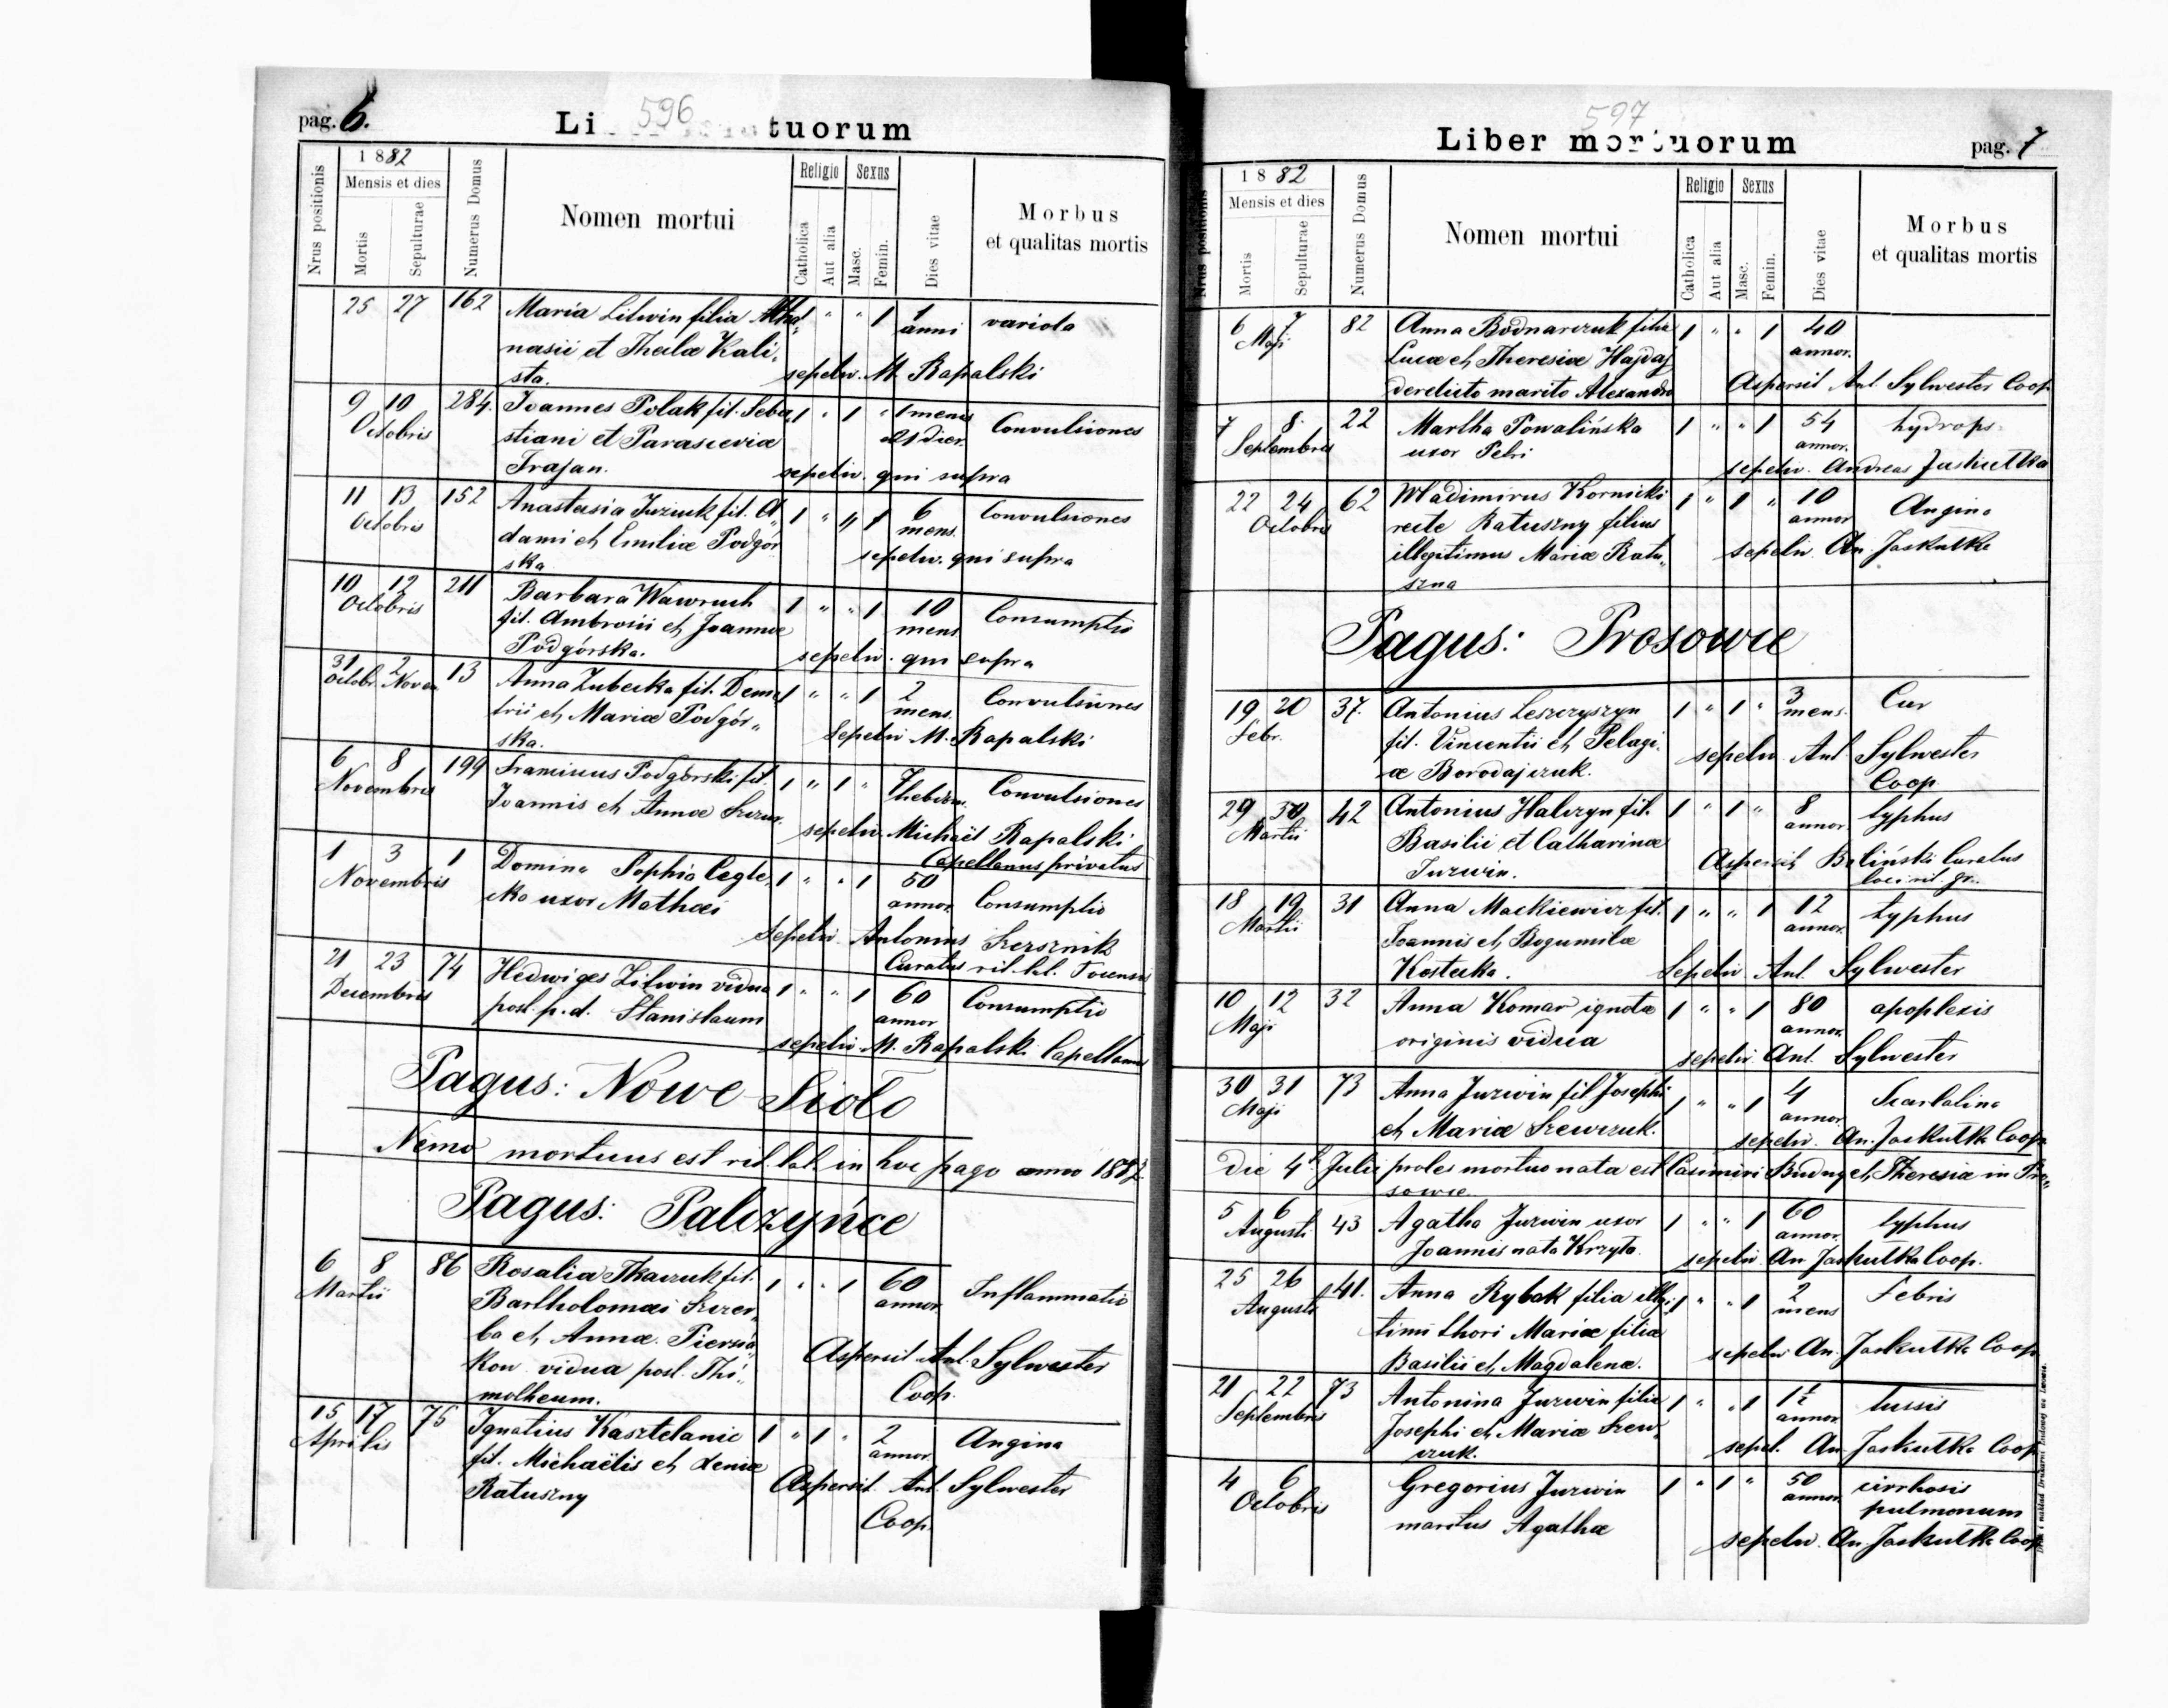 pag. 6.
596
Li tuorum
Nrus positionis
1882
Mensis et dies
Mortis
Sepulturae
Numerus Domus
Nomen mortui
Religio
Catholica
Aut alia
Sexus
Masc.
Femin.
Dies vitae
Morbus
et qualitas mortis
25 27 162 Maria Litwin filia Atha„ 1 " " 1 1 variola
nasii et Theclæ Kali„ anni
sta. sepeliv. M. Rapalski
9 10 284. Joannes Polak fil. Seba„ 1 " 1 " 1 mens Convulsiones
Octobris stiani et Parasceviæ 21 dier.
Trajan. sepeliv. qui supra
11 13 152 Anastasia Jurczuk fil. A„ 1 " " 1 6 Convulsiones
Octobris dami et Emiliæ Podgór mens.
ska sepeliv. qui supra
10 12 211 Barbara Wawruch 1 " " 1 10 Consumptio
Octobris fil. Ambrosii et Joannæ mens
Podgórska. sepeliv. qui supra
31 2 13 Anna Zubecka fil. Deme 1 " " 1 2 Convulsiones
Octobr. Novem trii et Mariæ Podgór„ mens.
ska. Sepeliv M. Rapalski
6 8 199 Franciscus Podgórski fil. 1 " 1 " 7 hebdom. Convulsiones
Novembris Joannis et Annæ
sepeliv. Michaël Rapalski
Capellanus privatus
1 3 1 Domina Sophia Cegle„ 1 " " 1 50 Consumptio
Novembris cka uxor Mathæi annor.
Sepeliv Antonius Szersznik
Curatus rit. lat.
21 23 74 Hedwiges Litwin vidua 1 " " 1 60 Consumptio
Decembris post. p. d. Stanislaum annor
sepeliv. M. Rapalski Capellanus
Pagus: Nowe Sioło
Nemo mortuus est rit. lat. in hoc pago anno 1882.
Pagus: Palczyńce
6 8 86 Rosalia Tkaczuk fil. 1 " " 1 60 Inflammatio
Martii Bartholomæi Szczer„ annor
ba et Annæ Piersia„
kow vidua post. Thi„ Aspersit Ant. Sylwester
motheum. Coop.
15 17 75 Ignatius Kasztelanic 1 " 1 " 2 Angina
Aprilis fil. Michaëlis et Xeniæ annor
Ratuszny Aspersit. Ant. Sylwester
Coop.
597
Liber mortuorum
pag. 7
Nrus positionis
1882
Mensis et dies
Mortis
Sepulturae
Numerus Domus
Nomen mortui
Religio
Catholica
Aut alia
Sexus
Masc.
Femin.
Dies vitae
Morbus
et qualitas mortis
6 7 82 Anna Bodnarczuk filia 1 " " 1 40
Maji Lucæ et Theresiæ Hajdaj annor.
derelicto marito Alexandro Aspersit Ant. Sylwester Coop
7 8 22 Martha Powalińska 1 " " 1 54 hydrops
Septembris uxor Petri annor.
sepeliv. Andreas Jaskulka
22 24 62 Wladimirus Kornicki 1 " 1 " 10 Angina
Octobris recte Ratuszny filius annor
illegitimus Mariæ Ratu„ sepeliv. An. Jaskulka
szna
Pagus: Prosowce
19 20 37. Antonius Leszczyszyn 1 " 1 " 3 mens.
Febr. fil. Vincentii et Pelagi„
æ Borodajczuk. sepeliv Ant Sylwester
Coop.
29 30 42 Antonius Halczyn fil. 1 " 1 " 8 typhus
Martii Basilii et Catharinæ annor
Jurzwin. Aspersit Biliński Curatus
loci rit. gr.
18 19 31 Anna Mackiewicz fil. 1 " " 1 12 typhus
Martii Joannis et Bogumilæ annor.
Kostecka. Sepeliv Ant. Sylwester
10 12 32 Anna Komar ignotæ 1 " " 1 80 apoplexis
Maji originis vidua annor.
sepeliv. Ant. Sylwester
30 31 73 Anna Jurzwin fil Josephi 1 " " 1 4 Scarlatina
Maji et Mariæ Szewczuk. annor.
sepeliv. An. Jaskulka Coop
Die 4. Julii proles mortuo nata est Casimiri Budny et Theresia in Pro„
sowce.
5 6 43 Agatha Jurzwin uxor 1 " " 1 60 typhus
Augusti Joannis nata Krzyta annor.
sepeliv An Jaskulka Coop.
25 26 41. Anna Rybak filia illegi„ 1 " " 1 2 Febris
Augusti timi thori Mariæ filiæ mens
Basilii et Magdalenæ. sepeliv An. Jaskulka Coop
21 22 73 Antonina Jurzwin filia 1 " " 1 1½ tussis
Septembris Josephi et Mariæ Szew„ annor.
czuk. sepel. An Jaskulka Coop
4 6 Gregorius Jurzwin 1 " 1 " 50 cirrhosis
Octobris maritus Agathæ annor. pulmonum
sepeliv. An. Jaskulka Coop